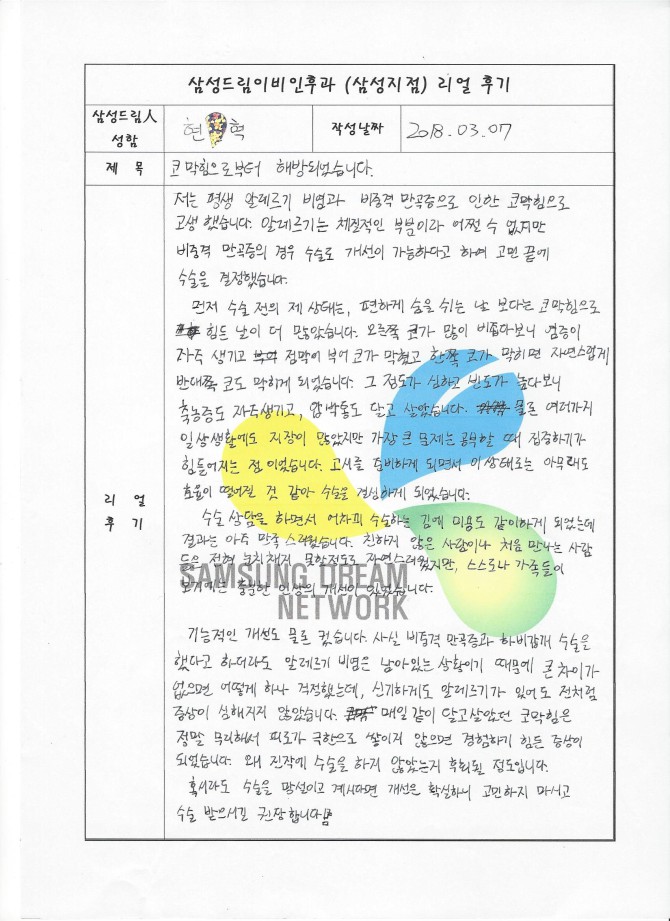 삼성드림이비인후과 (삼성지점) 리얼 후기
삼성드림人
성함
현 혁
작성날짜
2018.03.07
제 목
코막힘으로부터 해방되었습니다.
리 얼
후 기
저는 평생 알레르기 비염과 비중격 만곡증으로 인한 코막힘으로
고생했습니다. 알레르기는 체질적인 부분이라 어쩔 수 없지만
비중격 만곡증의 경우 수술로 개선이 가능하다고 하여 고민 끝에
수술을 결정했습니다.
먼저 수술 전의 제 상태는, 편하게 숨을 쉬는 날 보다는 코막힘으로
힘든 날이 더 많았습니다. 오른쪽 코가 많이 비좁다보니 염증이
자주 생기고 점막이 부어 코가 막혔고 한쪽 코가 막히면 자연스럽게
반대쪽 코도 막히게 되었습니다. 그 정도가 심하고 빈도가 높다보니
축농증도 자주생기고, 달고 살았습니다. 물론 여러가지
일상생활에도 지장이 많았지만 가장 큰 문제는 공부할 때 집중하기가
힘들어지는 점이었습니다. 고시를 준비하게 되면서 이 상태로는 아무래도
효율이 떨어질 것 같아 수술을 결심하게 되었습니다.
수술 상담을 하면서 어차피 수술하는 김에 미용도 같이하게 되었는데
결과는 아주 만족스러웠습니다. 친하지 않은 사람이나 처음 만나는 사람
들은 전혀 눈치채지 못할정도로 자연스러웠지만, 스스로나 가족들이
보기에는 충분한 인상의 개선이 있었습니다.
SAMSUNG DREAM
NETWORK
기능적인 개선도 물론 컸습니다. 사실 비중격 만곡증과 하비갑개 수술을
했다고 하더라도 알레르기 비염은 남아있는 상황이기 때문에 큰 차이가
없으면 어떻게 하나 걱정했는데, 신기하게도 알레르기가 있어도 전처럼
증상이 심해지지 않았습니다. 매일 같이 달고살았던 코막힘은
정말 무리해서 피로가 극한으로 쌓이지 않으면 경험하기 힘든 증상이
되었습니다. 왜 진작에 수술을 하지 않았는지 후회될 정도입니다.
혹시라도 수술을 망설이고 계시다면 개선은 확실하니 고민하지 마시고
수술 받으시길 권장합니다